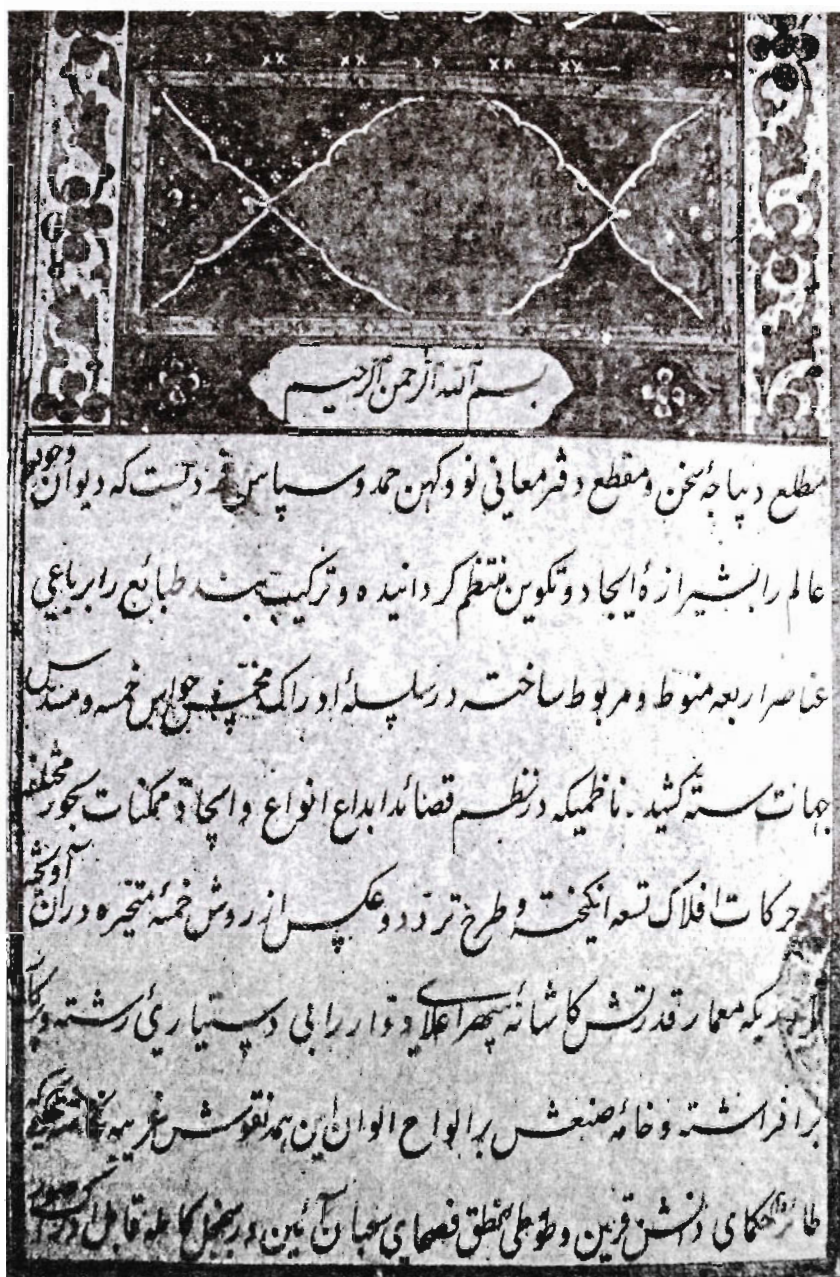 بسم الله الرحمن الرحیم
مطلع دیباچهٔ سخن و مقطع دفتر معانی نو و کهن حمد و سپاس که دیوان وجود
عالم را بشیرازهٔ ایجاد و تکوین منتظم گردانیده و ترکیب بند طبائع را برباعی
عناصر اربعه منوط و مربوط ساخته در سلسلهٔ ادراک مخمس حواس خمسه و مسدس
جهات سته کشید ـ ناظمیکه در نظم قصائد ابداع انواع و ممکنات بحور مختلفه
حرکات افلاک تسعه انگیخته و طرح تردد و عکس از روش خمسهٔ متحیره در آن آویخته
معمار قدرتش کاشانهٔ سپهر اعلای را بی دستیاریٔ رشته
برافراشته و خامهٔ صنعش بر الواح الوان این همه نقوش غریبه
حکمای دانش قرین و طوطی منطق فصحای سحبان آئین در